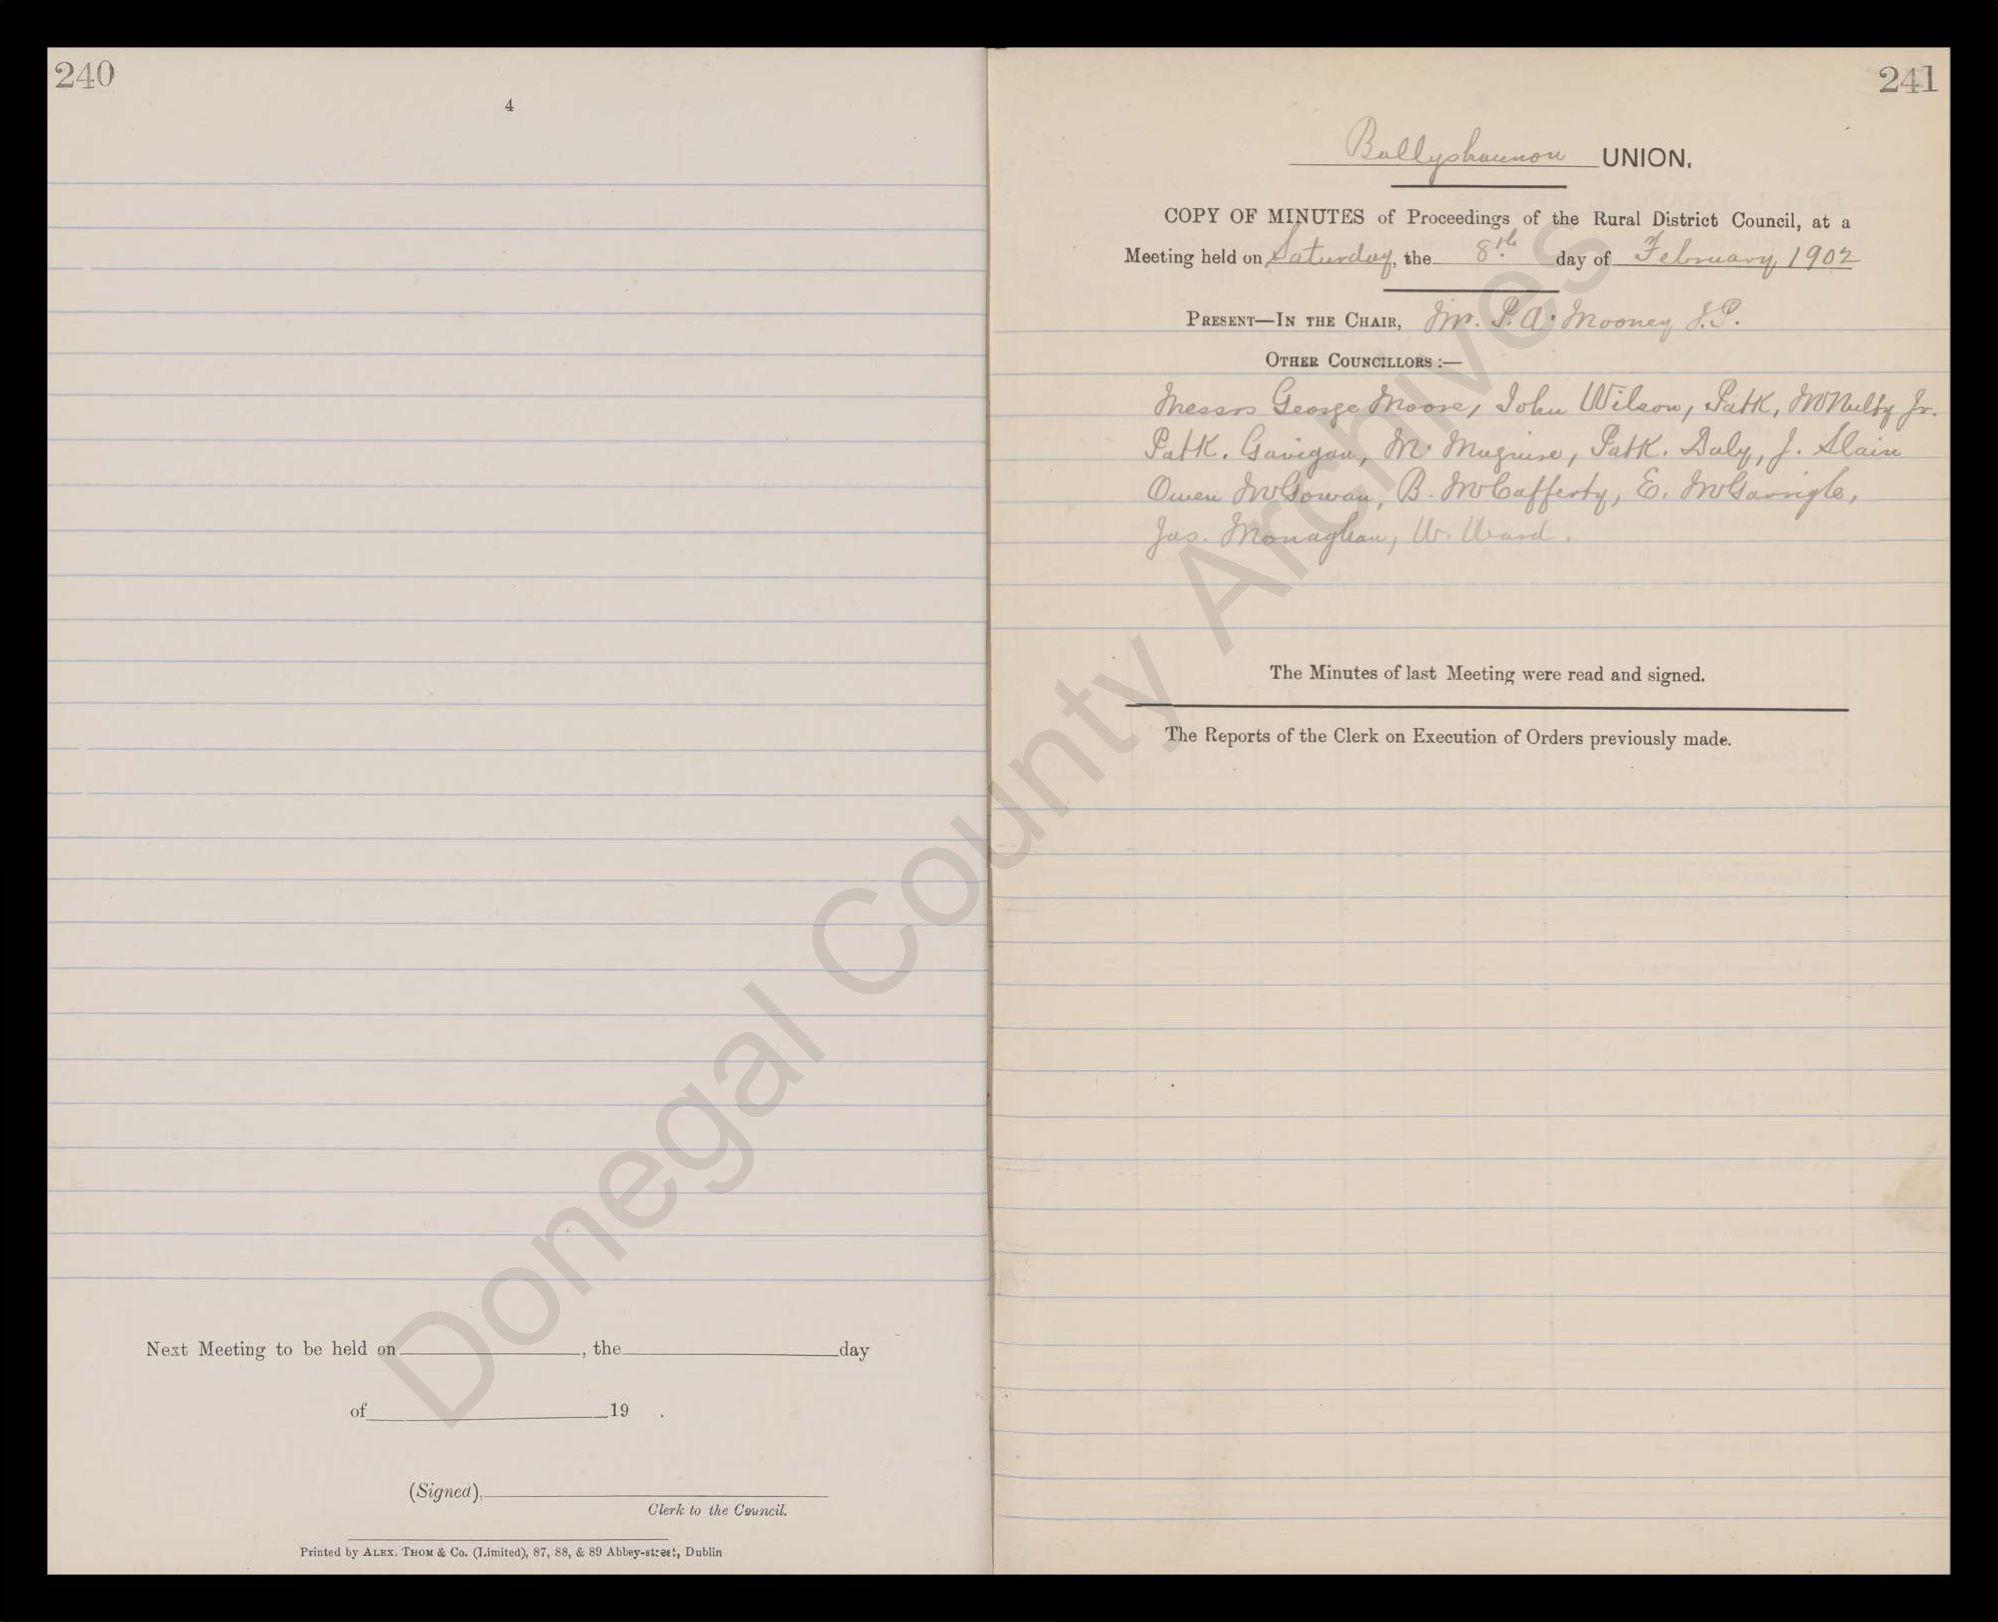 240
4
Next Meeting to be held on , the day
of 19 .
(Signed),
Clerk to the Council.
Printed by ALEX. THOM & Co. (Limited), 87, 88, & 89 Abbey-street, Dublin
241
Ballyshannon UNION.
COPY OF MINUTES of Proceedings of the Rural District Council, at a
Meeting held on Saturday, the 8th day of February, 1902
PRESENT—IN THE CHAIR, Mr. P. A. Mooney J.P.
OTHER COUNCILLORS :—
Messrs George Moore, John Wilson, Patk, McNulty Jr.
Patk. Gavigan, M. Maguire, Patk. Daly, J. Slain
Owen McGowan, B. McCafferty, E. McGarrigle,
Jas. Monaghan, W. Ward.
The Minutes of last Meeting were read and signed.
The Reports of the Clerk on Execution of Orders previously made.
Donegal County Archives